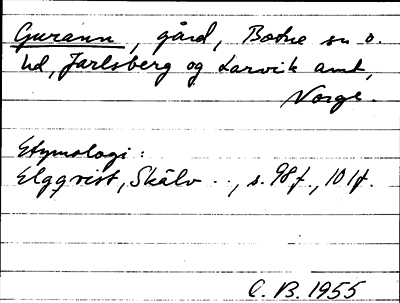 Gurann, gård, Botne sn o.
hd, Jarlsberg og Larvik amt,
Norge.
Etymologi:
Elgqvist, Skälv .., s. 98f., 101f.
C. B. 1955